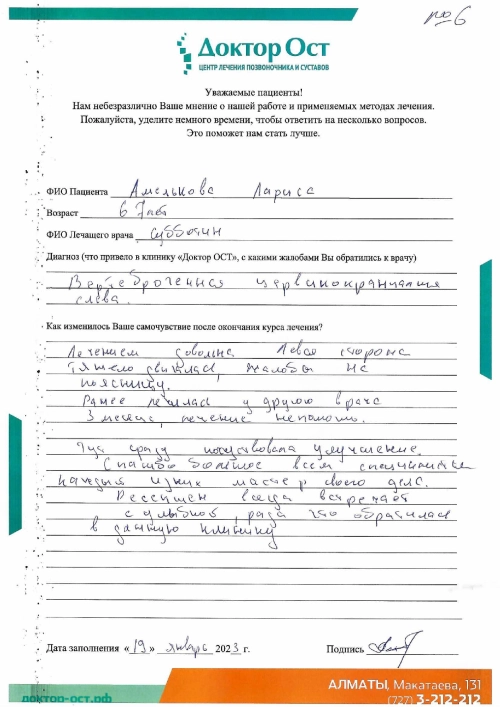 №6
Доктор Ост
ЦЕНТР ЛЕЧЕНИЯ ПОЗВОНОЧНИКА И СУСТАВОВ
Уважаемые пациенты!
Нам небезразлично Ваше мнение о нашей работе и применяемых методах лечения.
Пожалуйста, уделите немного времени, чтобы ответить на несколько вопросов.
Это поможет нам стать лучше.
ФИО Пациента Амелькова Лариса
Возраст 67 лет
ФИО Лечащего врача Субботин
Диагноз (что привело в клинику «Доктор ОСТ», с какими жалобами Вы обратились к врачу)
Вертеброгенная цервикокраниалгия
слева.
Как изменилось Ваше самочувствие после окончания курса лечения?
Лечением довольна Левая сторона
тяжело двигалась, жалобы на
поясницу.
Ранее лечилась у другого врача
3 месяца, лечение непомогло.
сразу почувствовала улучшение.
Спасибо большое всем специалистам
каждый из них мастер своего дела.
Ресепшен всегда встречает
с улыбкой, рада что обратилась
в данную клинику
Дата заполнения «19» январь 2023 г. Подпись
АЛМАТЫ, Макатаева, 131
доктор-ост.рф (727) 3-212-212